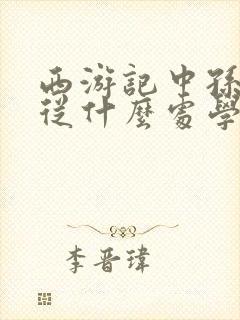 西游記中孫
從什麼處學
李晋瑋